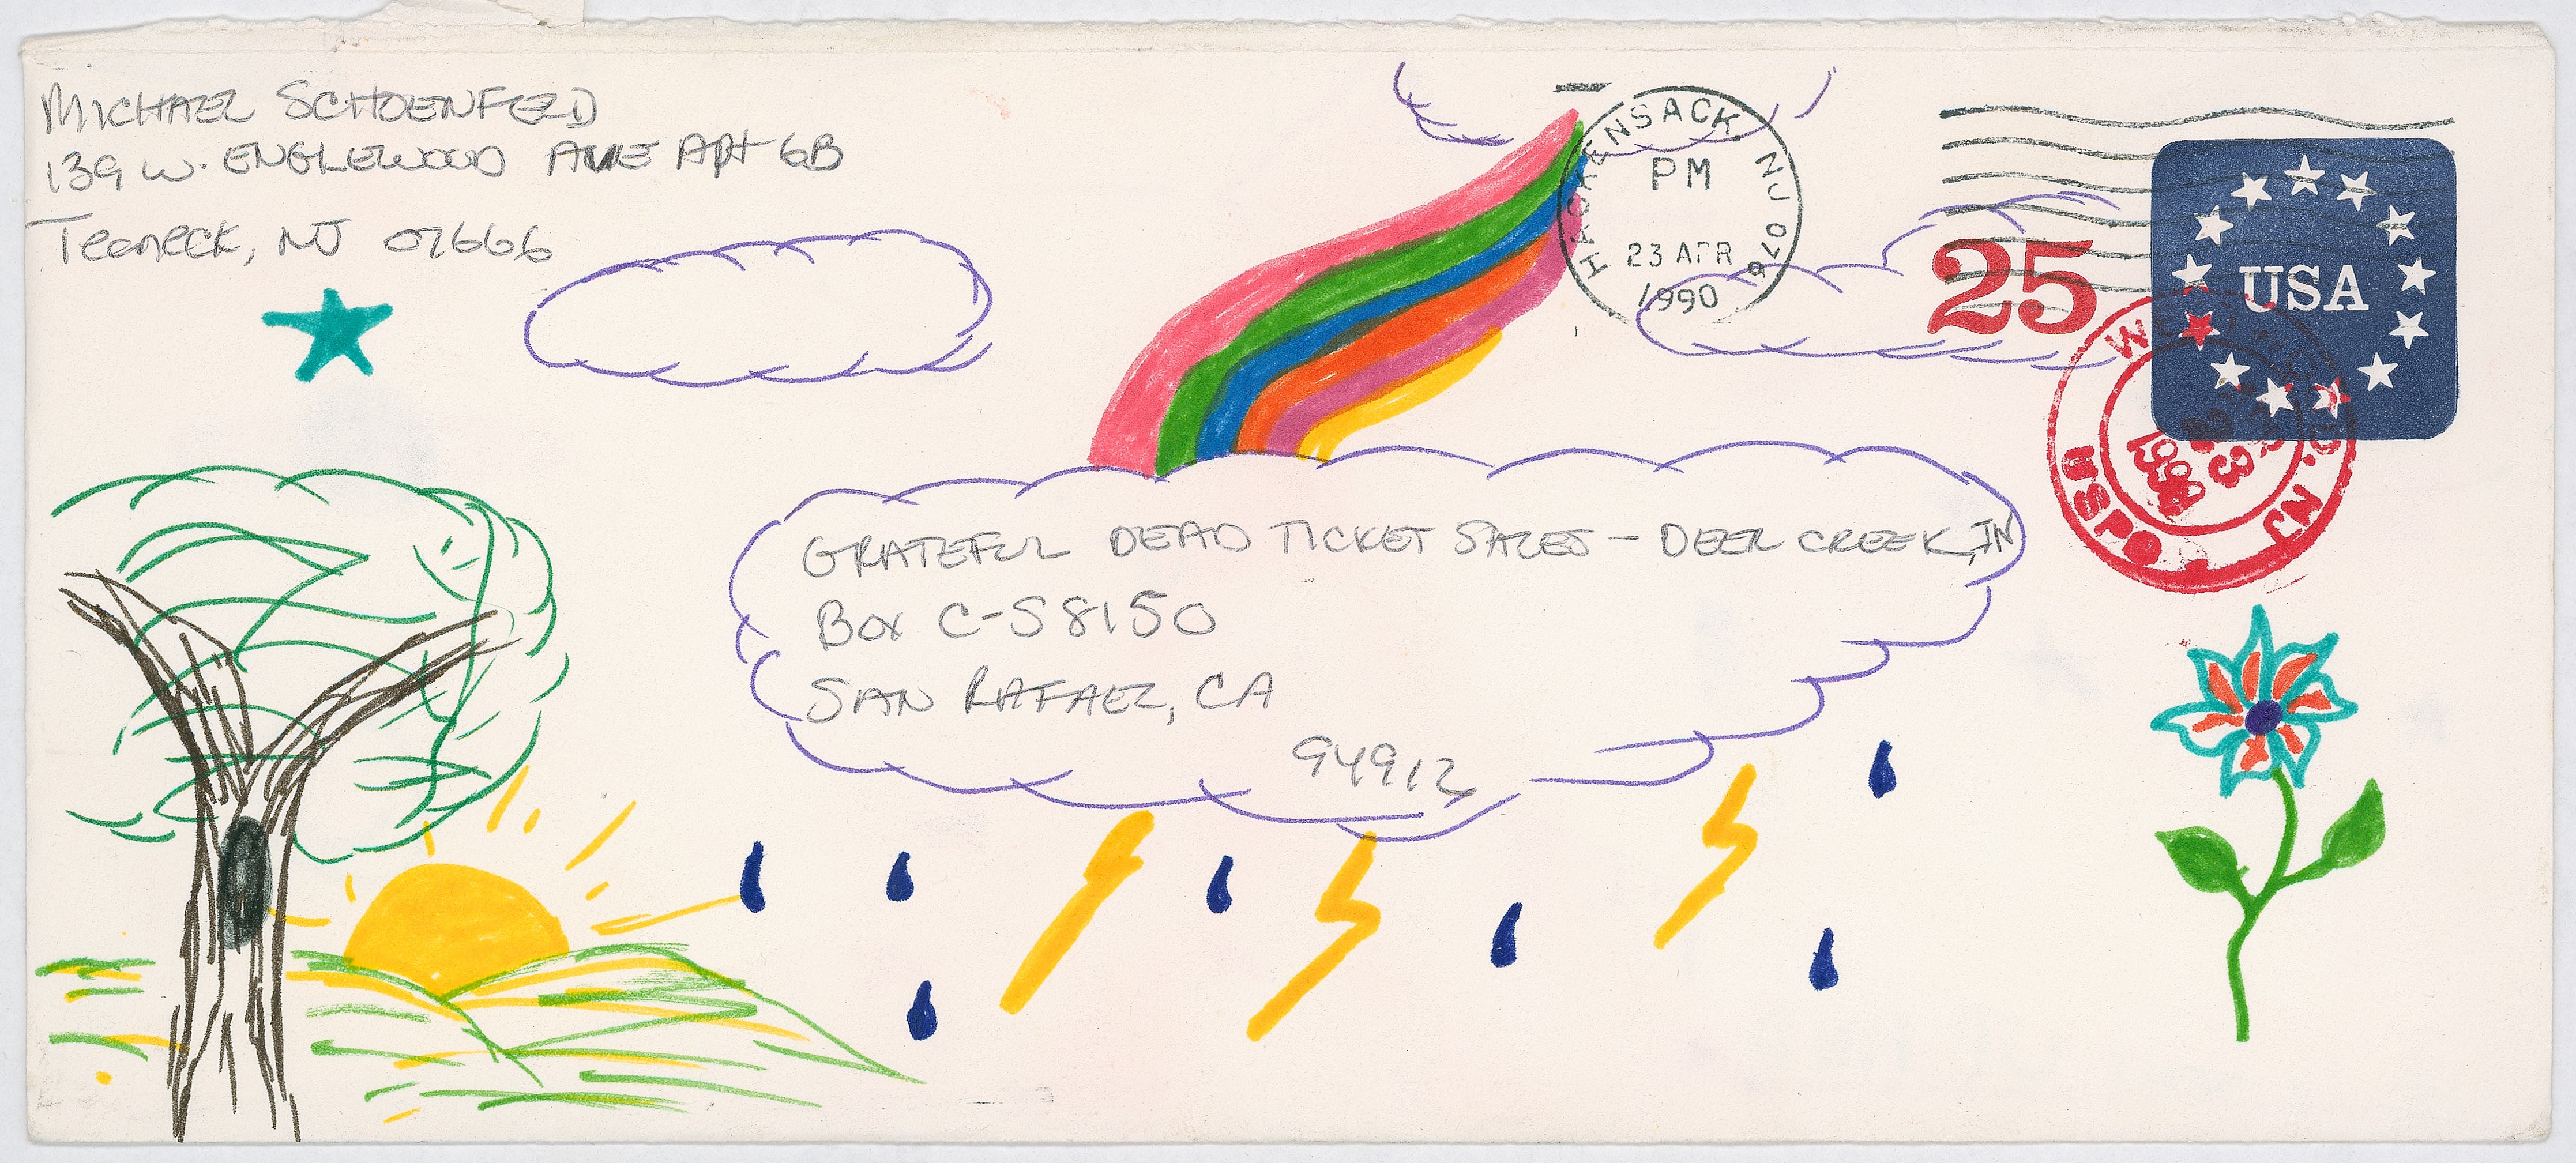 MICHAEL SCHOENFELD
139 W. ENGLEWOOD AVE APT 6B
TEANECK, NJ 07666
HACKENSACK NJ 076
PM
23 APR
1990
25
USA
USPO
NJ
23
1990
GRATEFUL DEAD TICKET SALES - DEER CREEK, IN
BOX C-S8150
SAN RAFAEL, CA
94912